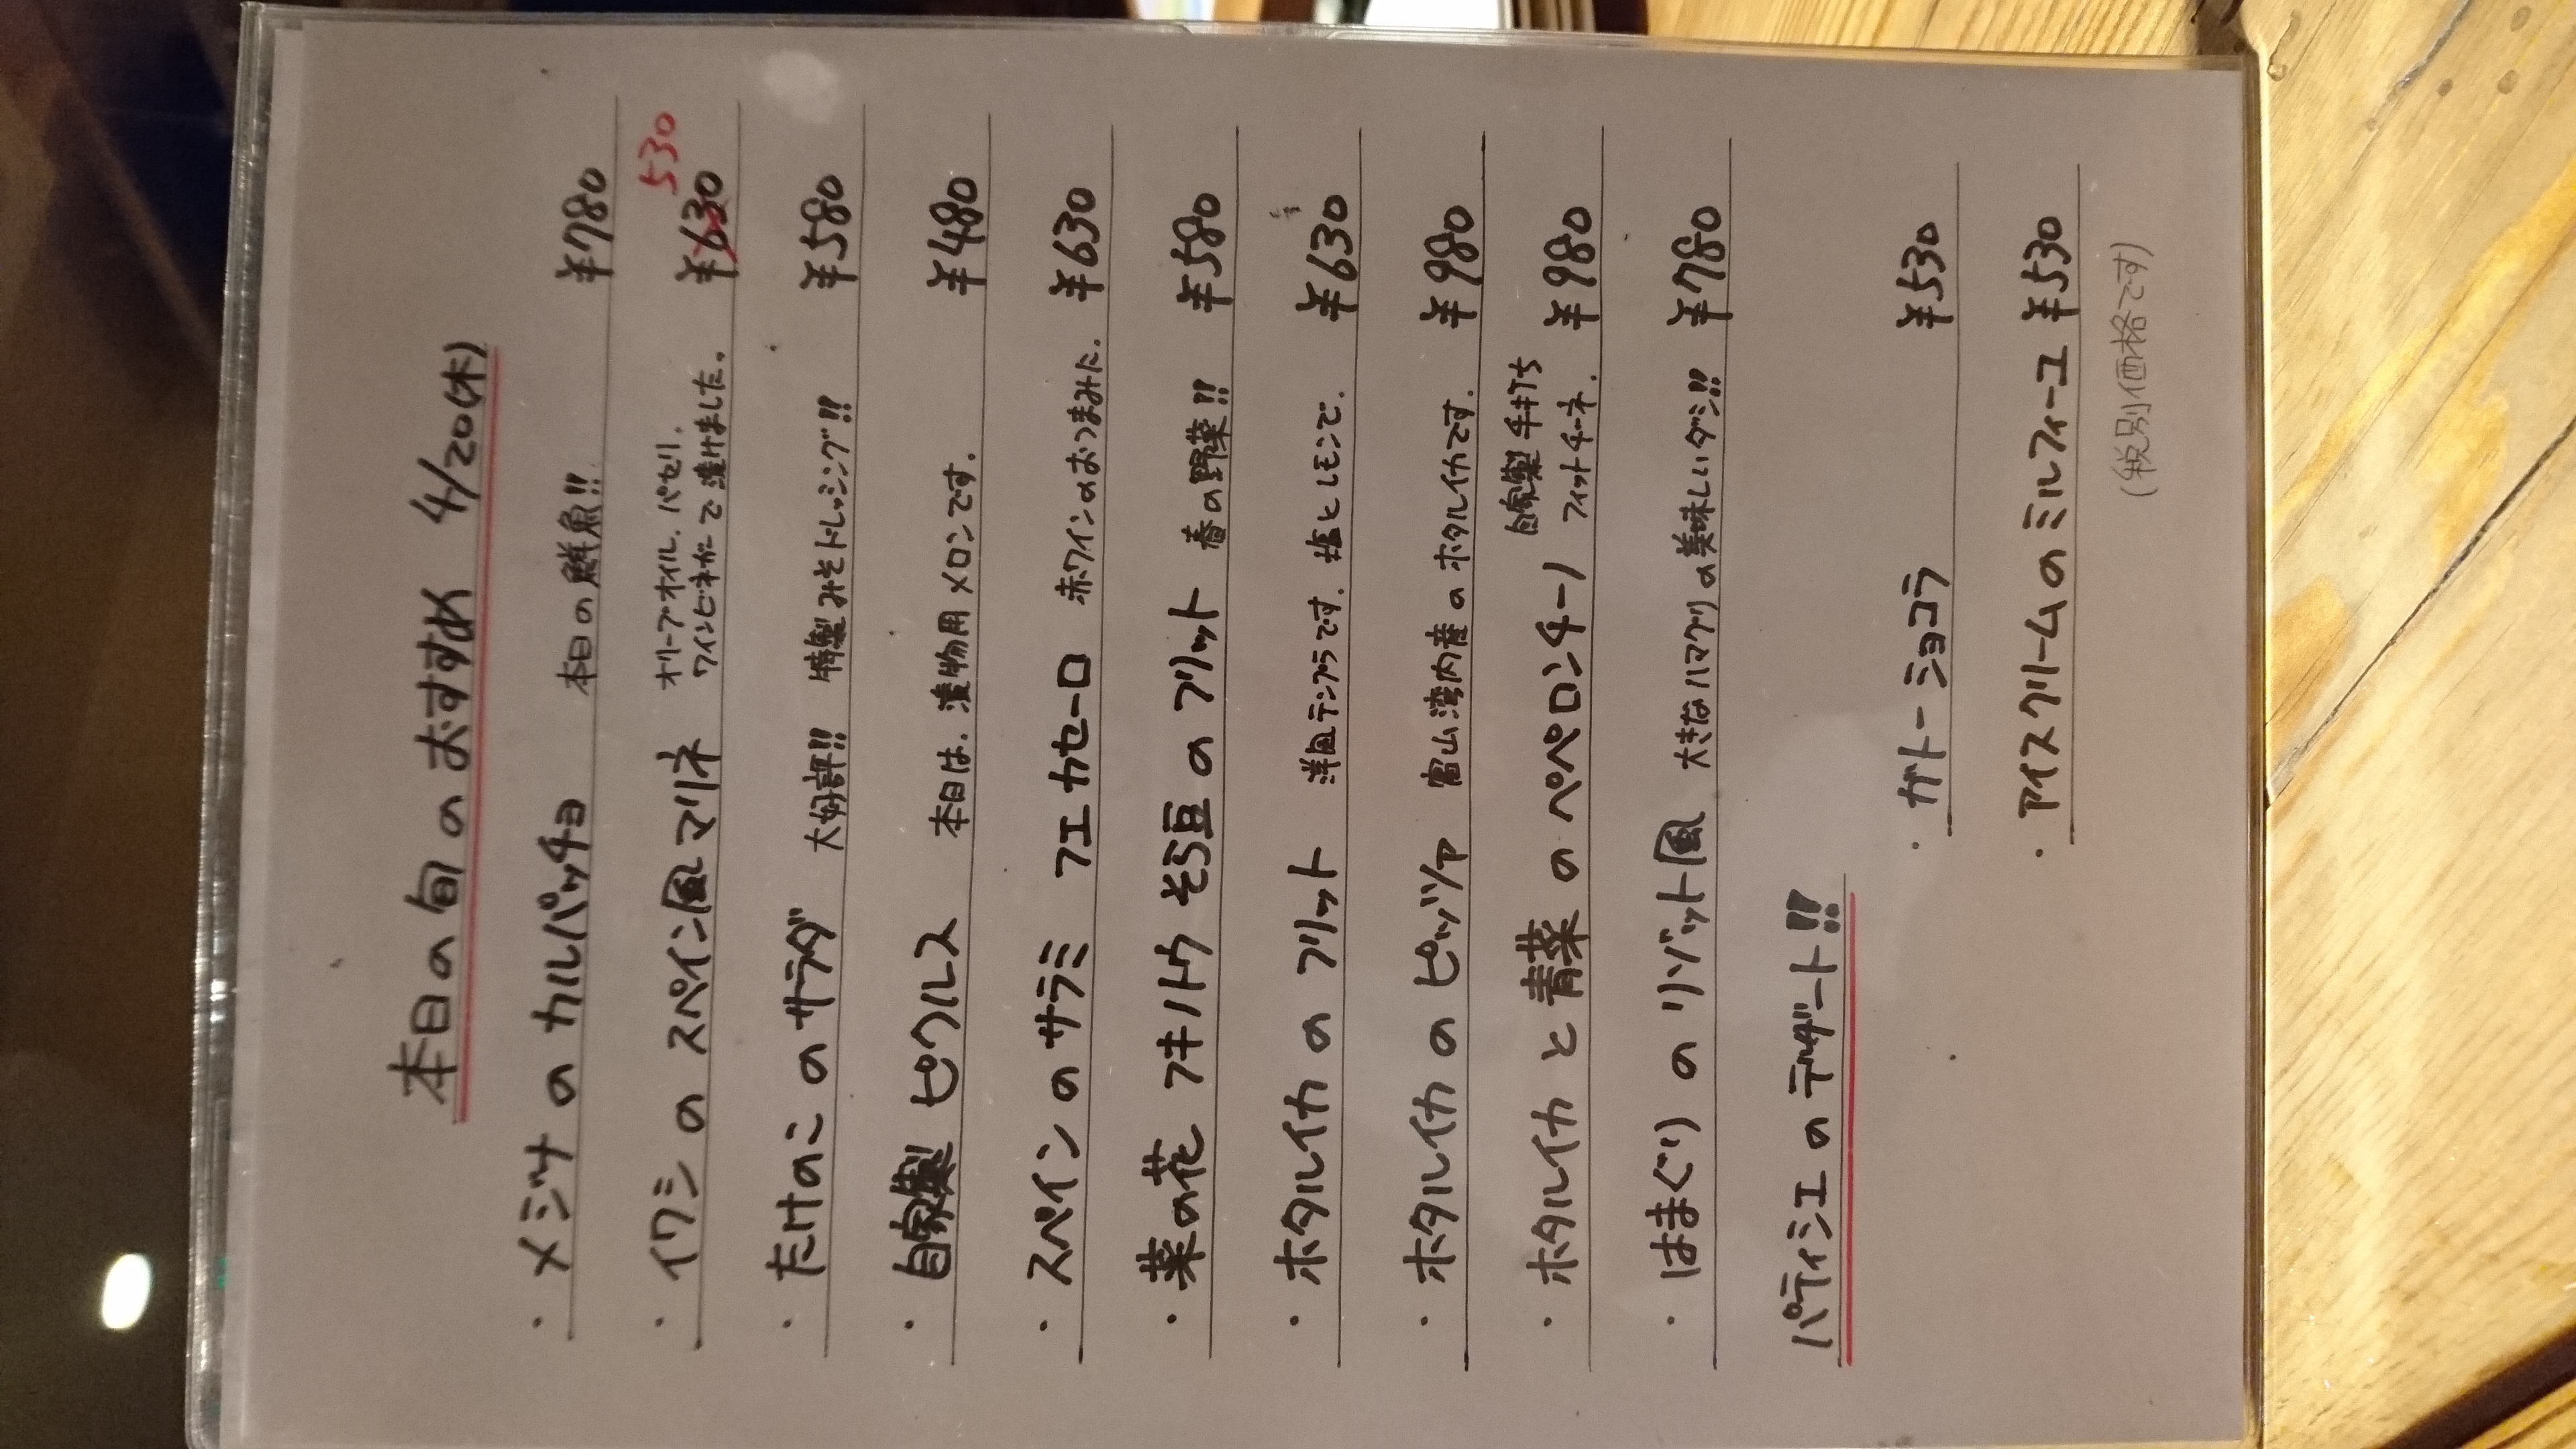 本日の旬のおすすめ 4/20(木)
・メジナのカルパッチョ 本日の鮮魚!! ¥780
530
・イワシのスペイン風マリネ オリーブオイル、パセリ、 ¥630
ワインビネガーで漬けました。
・たけのこのサラダ 大好評!! 特製みそドレッシング!! ¥580
・自家製ピクルス 本日は、漬物用メロンです。 ¥480
・スペインのサラミ フエカセーロ 赤ワインのおつまみに。 ¥630
・菜の花 フキノトウ そら豆のフリット 春の野菜!! ¥580
・ホタルイカのフリット 洋風テンプラです。塩とレモンで。 ¥630
・ホタルイカのピッツァ 富山湾内産のホタルイカです。 ¥980
自家製手打ち
・ホタルイカと青菜のペペロンチーノ フィットチーネ。 ¥980
・はまぐりのリゾット風 大きなハマグリの美味しいダシ!! ¥780
パティシエのデザート!!
・ガトーショコラ ¥530
・アイスクリームのミルフィーユ ¥530
(税別価格です)